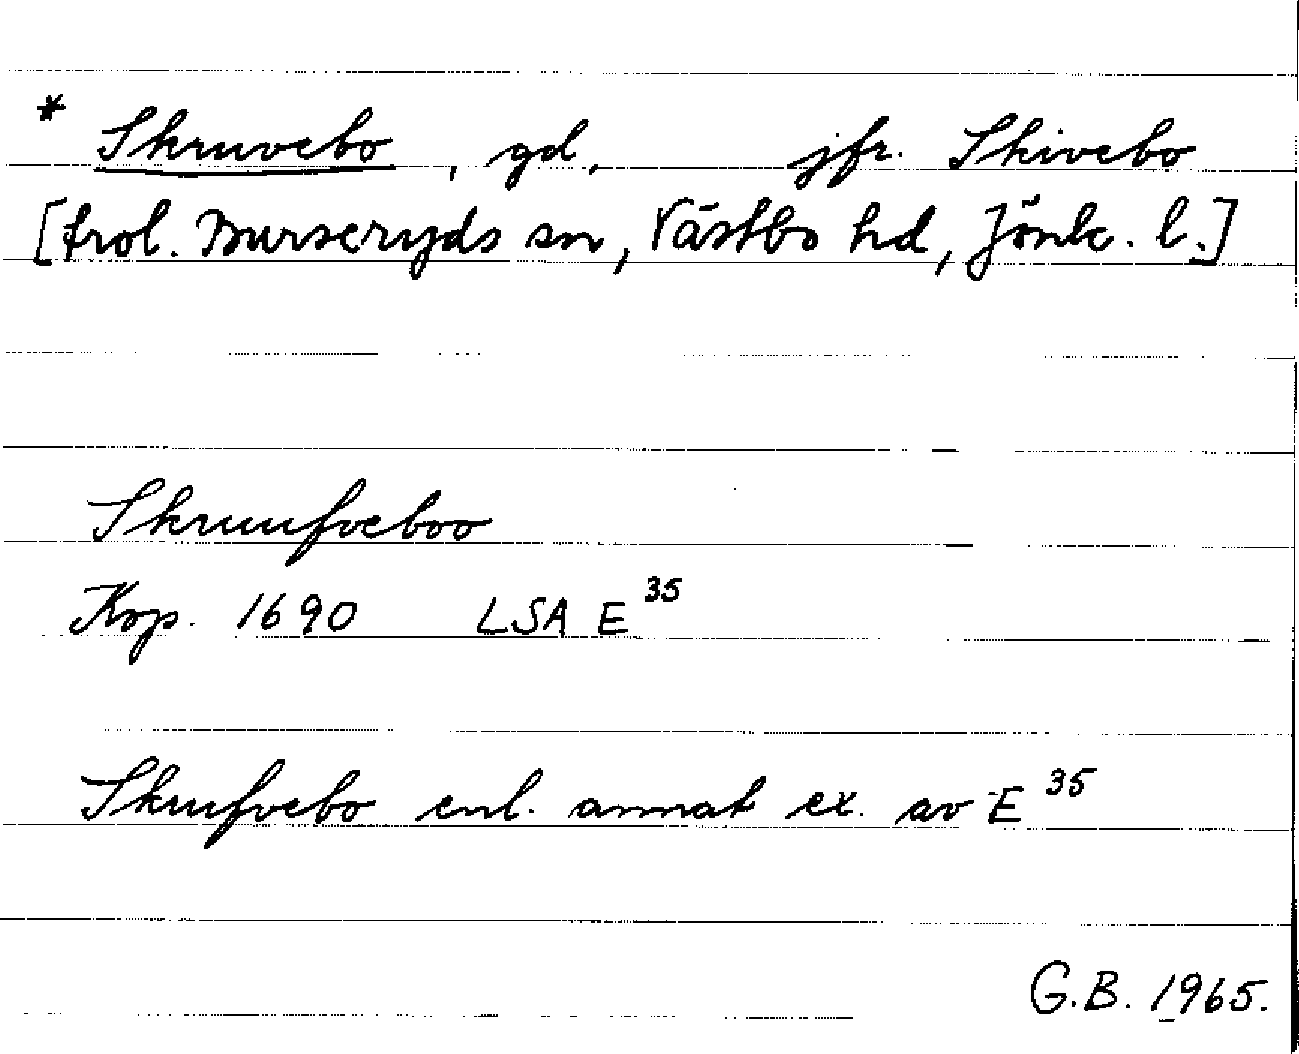 * Skruvebo, gd. jfr. Skivebo
[trol. Burseryds sn, Västbo hd, Jönk. l.]
Skruufveboo
Kop. 1690 LSA E 35
Skrufvebo enl. annat ex. av E 35
G.B. 1965.